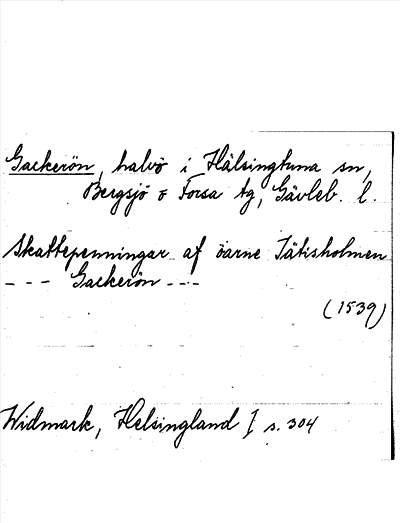 Gackerön, halvö i Hälsingtuna sn,
Bergsjö o Forsa tg, Gävleb. l.
Skattepenningar af öarne Tätisholmen
--- Gackerön ---
(1539)
Widmark, Helsingland I s. 304